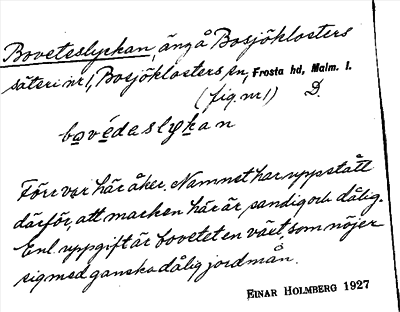 Boveteslyckan, äng å Bosjöklosters
säteri nr 1, Bosjöklosters sn, Frosta hd, Malm. l.
(fig. nr 1) D.
bo̲védeslyk̲an
Förr var här åker. Namnet har uppstått
därför, att marken här är sandig och dålig.
Enl. uppgift är bovetet en växt, som nöjer
sig med ganska dålig jordmån.
EINAR HOLMBERG 1927